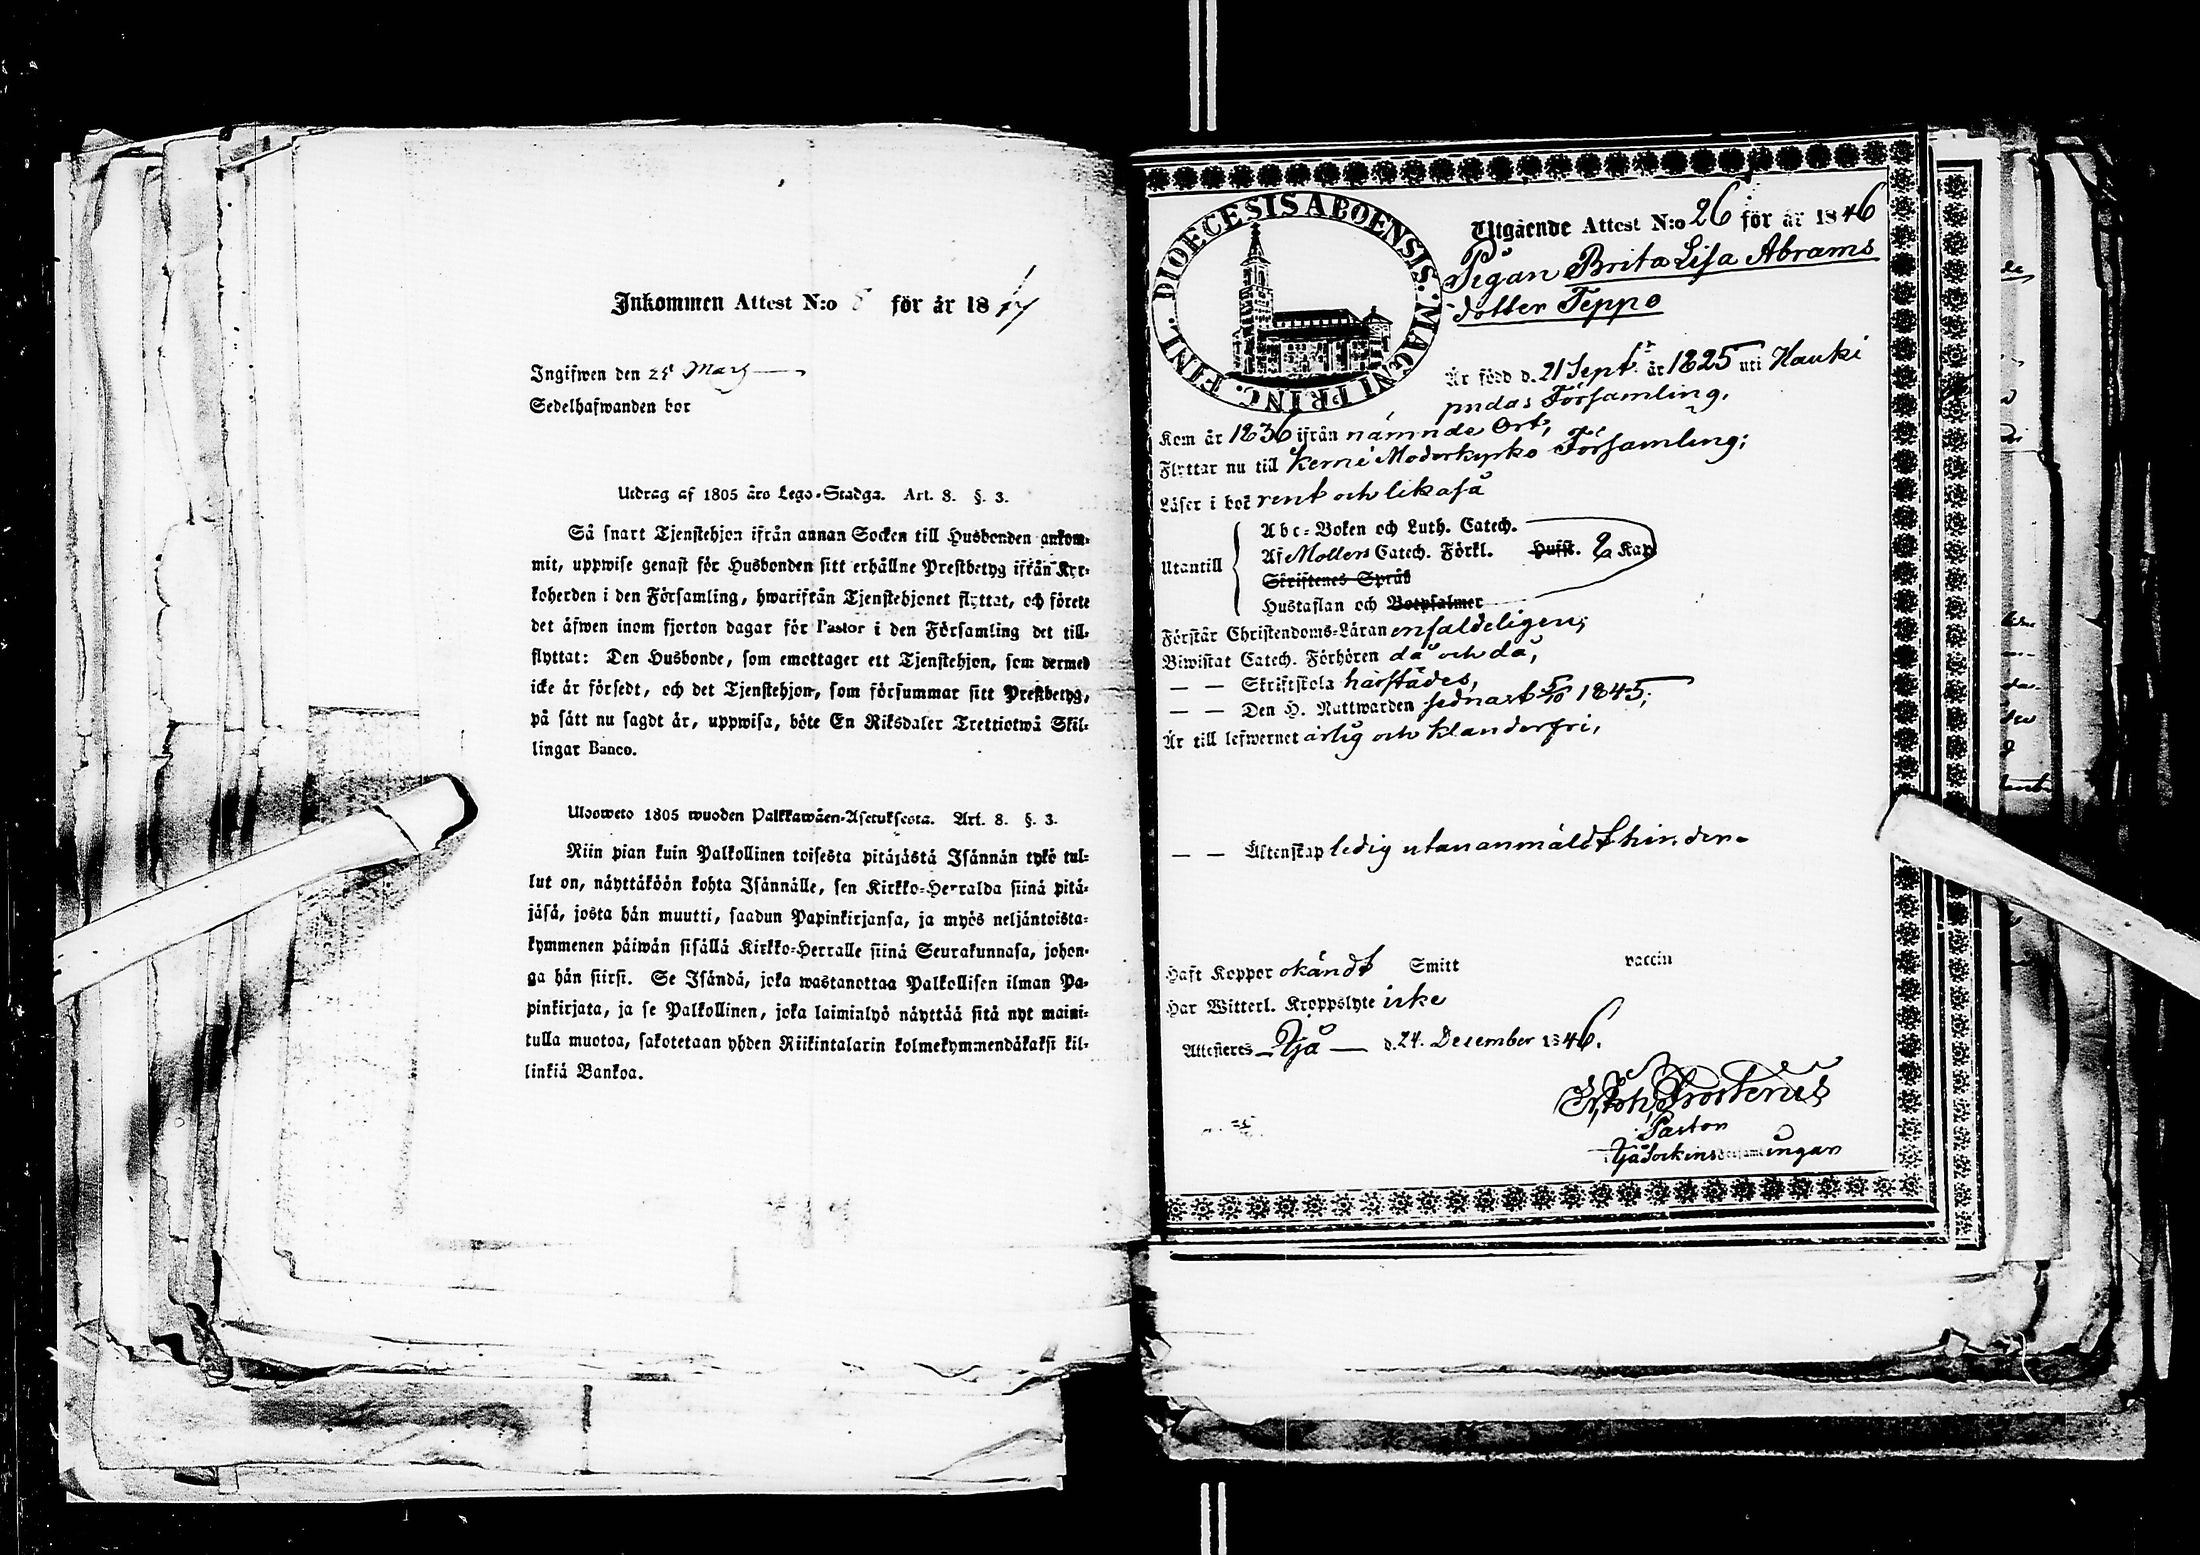 Inkommen Attest N:o 8 för år 1847
Ingifwen den 25 Mars
Sedelhafwanden bor
Utdrag af 1805 års Lego-Stadga. Art. 8. §. 3.
Så snart Tjenstehjon ifrån annan Socken till Husbonden ankom-
mit, uppwise genast för Husbonden sitt erhållne Prestbetyg ifrån Kyr-
koherden i den Församling, hwarifrån Tjenstehjonet flyttat, och förete
det äfwen inom fjorton dagar för Pastor i den Församling det till-
flyttat: Den Husbonde, som emottager ett Tjenstehjon, som dermed
icke är försedt, och det Tjenstehjon, som försummar sitt Prestbetyg,
på sätt nu sagdt är, uppwisa, böte En Riksdaler Trettiotwå Skil-
lingar Banco.
Ulosweto 1805 wuoden Palkkawäen-Asetuksesta. Art. 8. §. 3.
Niin pian kuin Palkollinen toisesta pitäjästä Isännän tykö tul-
lut on, näyttäköön kohta Isännälle, sen Kirkko-Herralda siinä pitä-
jäsä, josta hän muutti, saadun Papinkirjansa, ja myös neljäntoista-
kymmenen päiwän sisällä Kirkko-Herralle siinä Seurakunnasa, johon-
ga hän siirsi. Se Isändä, joka wastanottaa Palkollisen ilman Pa-
pinkirjata, ja se Palkollinen, joka laiminlyö näyttää sitä nyt maini-
tulla muotoa, sakotetaan yhden Riikintalarin kolmekymmendäkaksi kil-
linkiä Bankoa.
DIOECESIS ABOENSIS. MAGNI PRINC. FINL.
Utgående Attest N:o 26 för år 1846
Pigan Brita Lisa Abrams
dotter Teppo
Är född d. 21 Septr år 1825 uti Hauki
pudas Församling,
Kom år 1836 ifrån nämnde Ort,
Flyttar nu till Kemi Moderkyrko Församling;
Läser i bok rent och likaså
Utantill
Abc-Boken och Luth. Catech.
Af Mollers Catech. Förkl. Husst. 2 Kap
Skriftenes Språk
Hustaflan och Botpsalmer
Förstår Christendoms-Läran enfaldeligen;
Biwistat Catech. Förhören då och då,
— — Skriftskola härstädes,
— — Den H. Nattwarden sednast 5/10 1845;
Är till lefwernet ärlig och klanderfri,
— — Äktenskap ledig utan anmäldt hinder.
Haft Koppor okändt Smitt vaccin
Har Witterl. Kroppslyte icke
Attesteras Ijå d. 24. December 1846.
Joh, Frosterus
Pastor
Ijå Sockens Församlingar